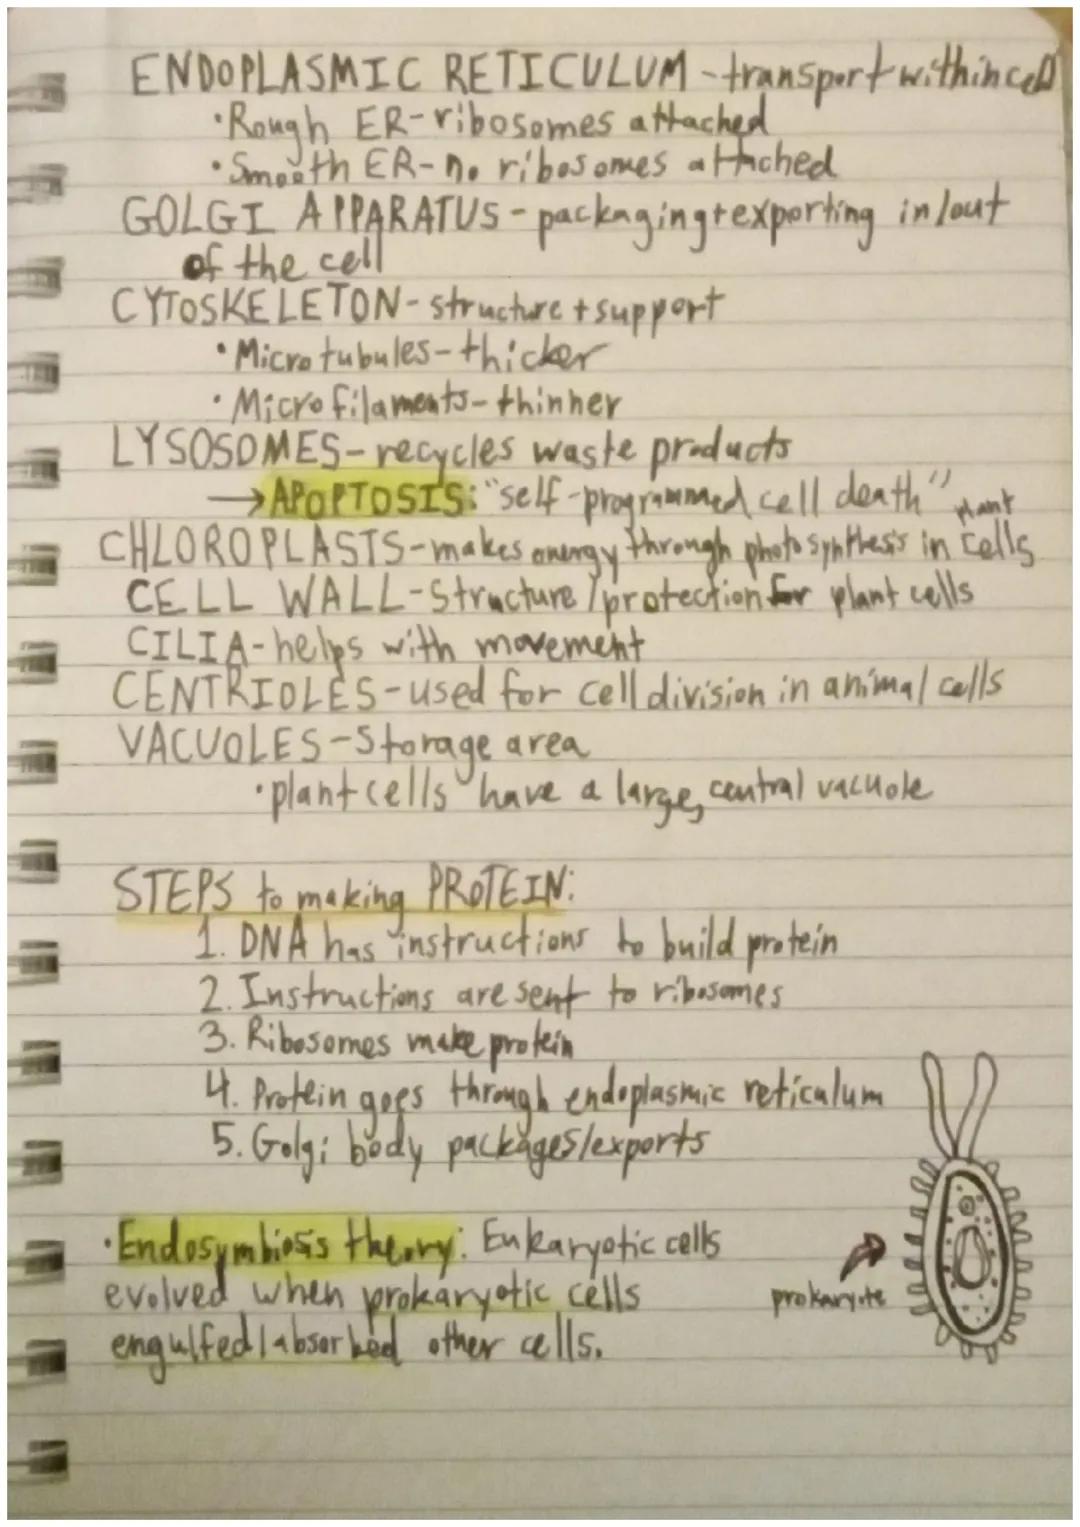 ENDOPLASMIC RETICULUM - transport within cell
• Rough ER - ribosomes attached
• Smooth ER - no ribosomes attached
GOLGI APPARATUS - packaging + exporting in/out
of the cell
CYTOSKELETON - structure + support
• Microtubules - thicker
• Microfilaments - thinner
LYSOSOMES - recycles waste products
→ APOPTOSIS: "self-programmed cell death"
CHLOROPLASTS - makes energy through photosynthesis in plant cells
CELL WALL - Structure/protection for plant cells
CILIA - helps with movement
CENTRIOLES - used for cell division in animal cells
VACUOLES - Storage area
• plant cells have a large, central vacuole
STEPS to making PROTEIN:
1. DNA has instructions to build protein
2. Instructions are sent to ribosomes
3. Ribosomes make protein
4. Protein goes through endoplasmic reticulum
5. Golgi body packages/exports
• Endosymbiosis theory: Eukaryotic cells
evolved when prokaryotic cells
engulfed/absorbed other cells.
prokaryote